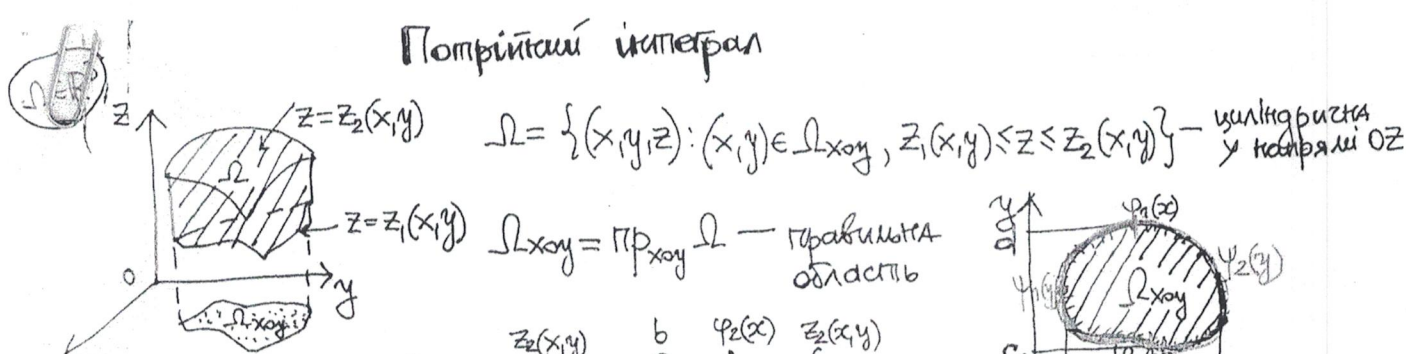 Потрійний інтеграл
Ω ⊂ R³
z
z=z₂(x,y)
Ω
z=z₁(x,y)
0
y
Ωxoy
Ω = {(x,y,z): (x,y)∈Ωxoy, z₁(x,y)≤z≤z₂(x,y)} — циліндрична
у напрямі OZ
Ωxoy = прxoy Ω — правильна
область
y
d
φ₂(x)
ψ₁(y)
ψ₂(y)
Ωxoy
c
z₂(x,y) b φ₂(x) z₂(x,y)